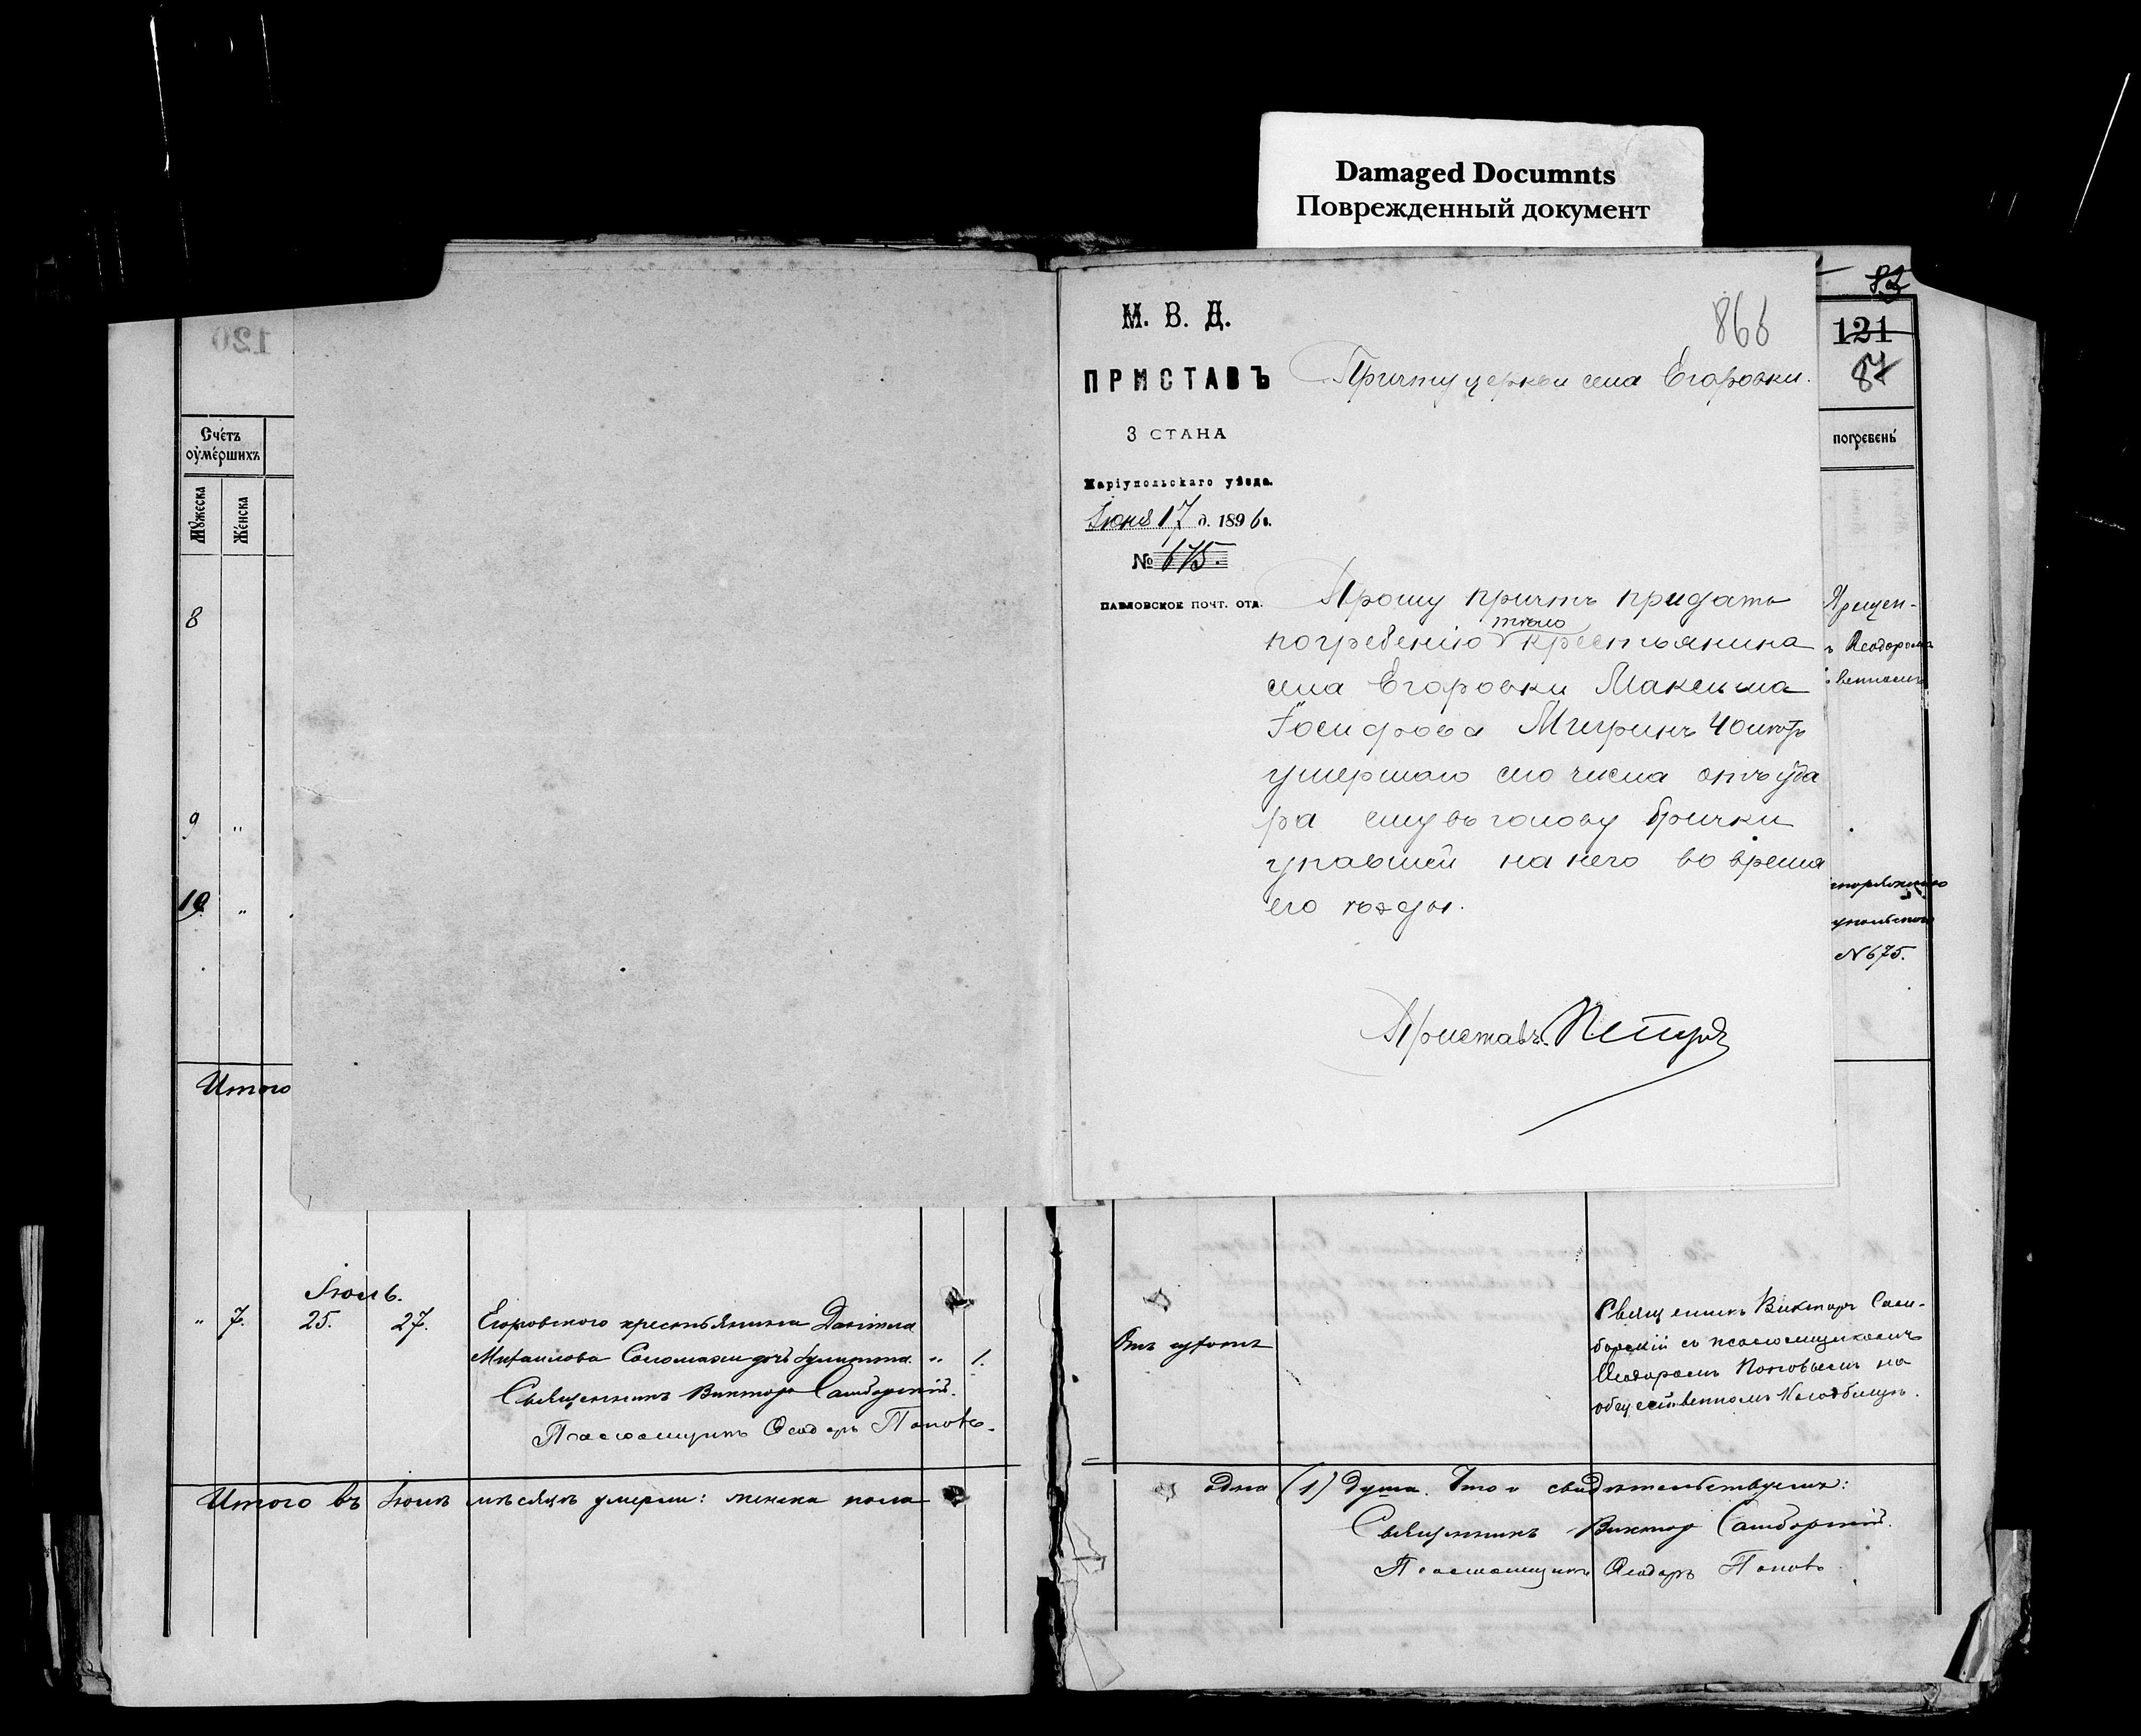 Damaged Documnts
Поврежденный документ
120
Счётъ
оумершихъ
Мужеска
Женска
8
9 "
10 "
Итого
М. В. Д.
ПРИСТАВЪ
3 СТАНА
Маріупольскаго уѣзда.
Іюня 17 д. 1896 г.
№ 675.
ПАВЛОВСКОЕ ПОЧТ. ОТД.
868
Причту церкви села Егоровки.
Прошу причтъ придать
погребенію тѣло крестьянина
села Егоровки Максима
Іосифова 40 лѣтъ
умершаго сего числа отъ уда
ра ему въ голову брички
упавшей на него во время
его ѣзды.
Приставъ
82
121
87
погребенъ
Священ-
ъ Ѳеодоромъ
N 675.
Іюль.
" 7. 25. 27. Егоровского крестьянина Даніила
Михаилова дочь Іулитта. " 1.
Священникъ Викторъ Самборскій.
Псаломщикъ Ѳеодоръ Поповъ.
Священникъ Викторъ Сам-
борскій съ псаломщикомъ
Ѳеодоромъ Поповымъ на
общественномъ кладбищѣ.
Итого въ Іюлѣ мѣсяцѣ умерли: женска пола
одна (1) душа. Что и свидѣтельствуемъ:
Священникъ Викторъ Самборскій.
Псаломщикъ Ѳеодоръ Поповъ.